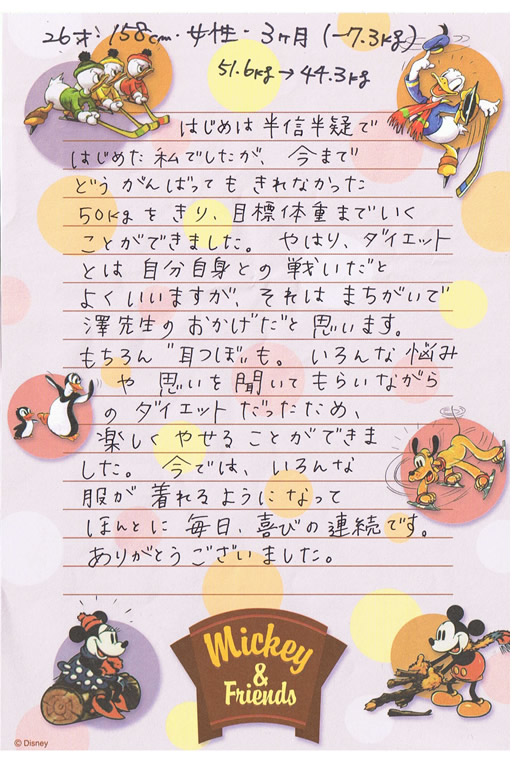 26才・158cm・女性・3ヶ月(-7.3kg)
51.6kg→44.3kg
はじめは半信半疑で
はじめた私でしたが、今まで
どうがんばってもきれなかった
50kgをきり、目標体重までいく
ことができました。やはり、ダイエット
とは自分自身との戦いだと
よくいいますが、それはまちがいで
澤先生のおかげだと思います。
もちろん"耳つぼ"も。いろんな悩み
や思いを聞いてもらいながら
のダイエットだったため、
楽しくやせることができま
した。今では、いろんな
服が着れるようになって
ほんとに毎日、喜びの連続です。
ありがとうございました。
Mickey
&
Friends
© Disney